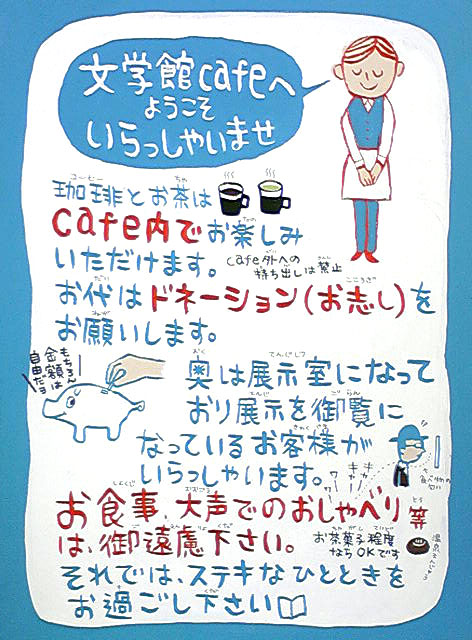 文学館cafeへ
ようこそ
いらっしゃいませ
珈琲とお茶は
cafe内でお楽しみ
いただけます。
cafe外への
持ち出しは禁止
お代はドネーション(お志し)を
お願いします。
もちろん
金額は
自由だヨ
奥は展示室になって
おり展示を御覧に
なっているお客様が
いらっしゃいます。
お食事、大声でのおしゃべり等
は、御遠慮下さい。
お茶菓子程度
ならOKです
それでは、ステキなひとときを
お過ごし下さい